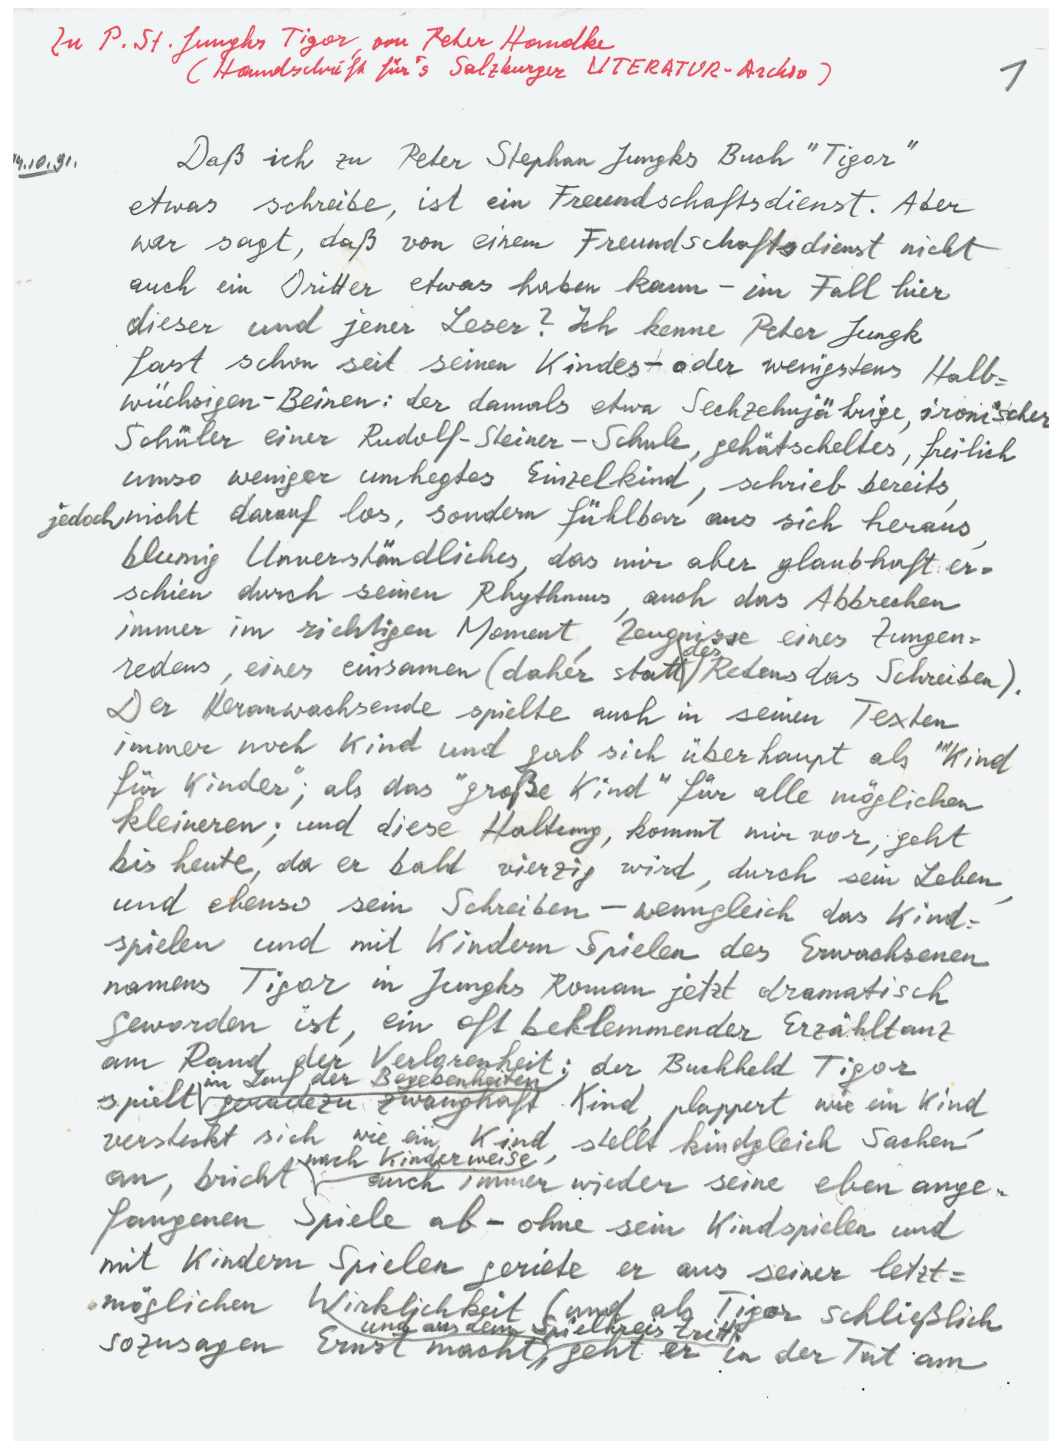 Zu P. St. Jungks Tigor, von Peter Handke
(Handschrift für's Salzburger LITERATUR-Archiv)
1
14.10.91.
Daß ich zu Peter Stephan Jungks Buch "Tigor"
etwas schreibe, ist ein Freundschaftsdienst. Aber
wer sagt, daß von einem Freundschaftsdienst nicht
auch ein Dritter etwas haben kann – im Fall hier
dieser und jener Leser? Ich kenne Peter Jungk
fast schon seit seinen Kindes- oder wenigstens Halb=
wüchsigen-Beinen: der damals etwa Sechzehnjährige, ironischer
Schüler einer Rudolf-Steiner-Schule, gehätscheltes, freilich
umso weniger umhegtes Einzelkind, schrieb bereits,
jedoch nicht darauf los, sondern fühlbar aus sich heraus,
blumig Unverständliches, das mir aber glaubhaft er=
schien durch seinen Rhythmus, auch das Abbrechen
immer im richtigen Moment, Zeugnisse eines Zungen=
redens, eines einsamen (daher statt des Redens das Schreiben).
Der Heranwachsende spielte auch in seinen Texten
immer noch Kind und gab sich überhaupt als "Kind
für Kinder", als das "große Kind" für alle möglichen
kleineren; und diese Haltung, kommt mir vor, geht
bis heute, da er bald vierzig wird, durch sein Leben,
und ebenso sein Schreiben – wenngleich das Kind=
spielen und mit Kindern Spielen des Erwachsenen
namens Tigor in Jungks Roman jetzt dramatisch
geworden ist, ein oft beklemmender Erzähltanz
am Rand der Verlorenheit: der Buchheld Tigor
im Lauf der Begebenheiten
spielt geradezu zwanghaft Kind, plappert wie ein Kind,
versteckt sich wie ein Kind, stellt kindgleich Sachen
nach Kinderweise
an, bricht auch immer wieder seine eben ange=
fangenen Spiele ab – ohne sein Kindspielen und
mit Kindern Spielen geriete er aus seiner letzt=
möglichen Wirklichkeit (und als Tigor schließlich
und aus dem Spielkreis tritt,
sozusagen Ernst macht, geht er in der Tat am